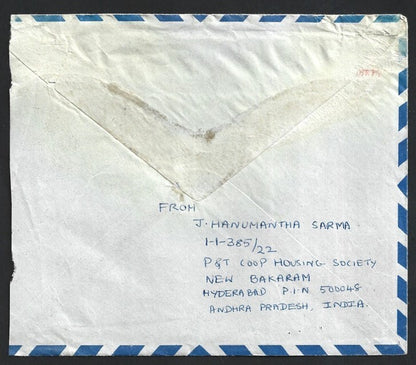 FROM
J. HANUMANTHA SARMA
1-1-385/22
P&T COOP HOUSING SOCIETY
NEW BAKARAM
HYDERABAD P.I.N 500048
ANDHRA PRADESH, INDIA.